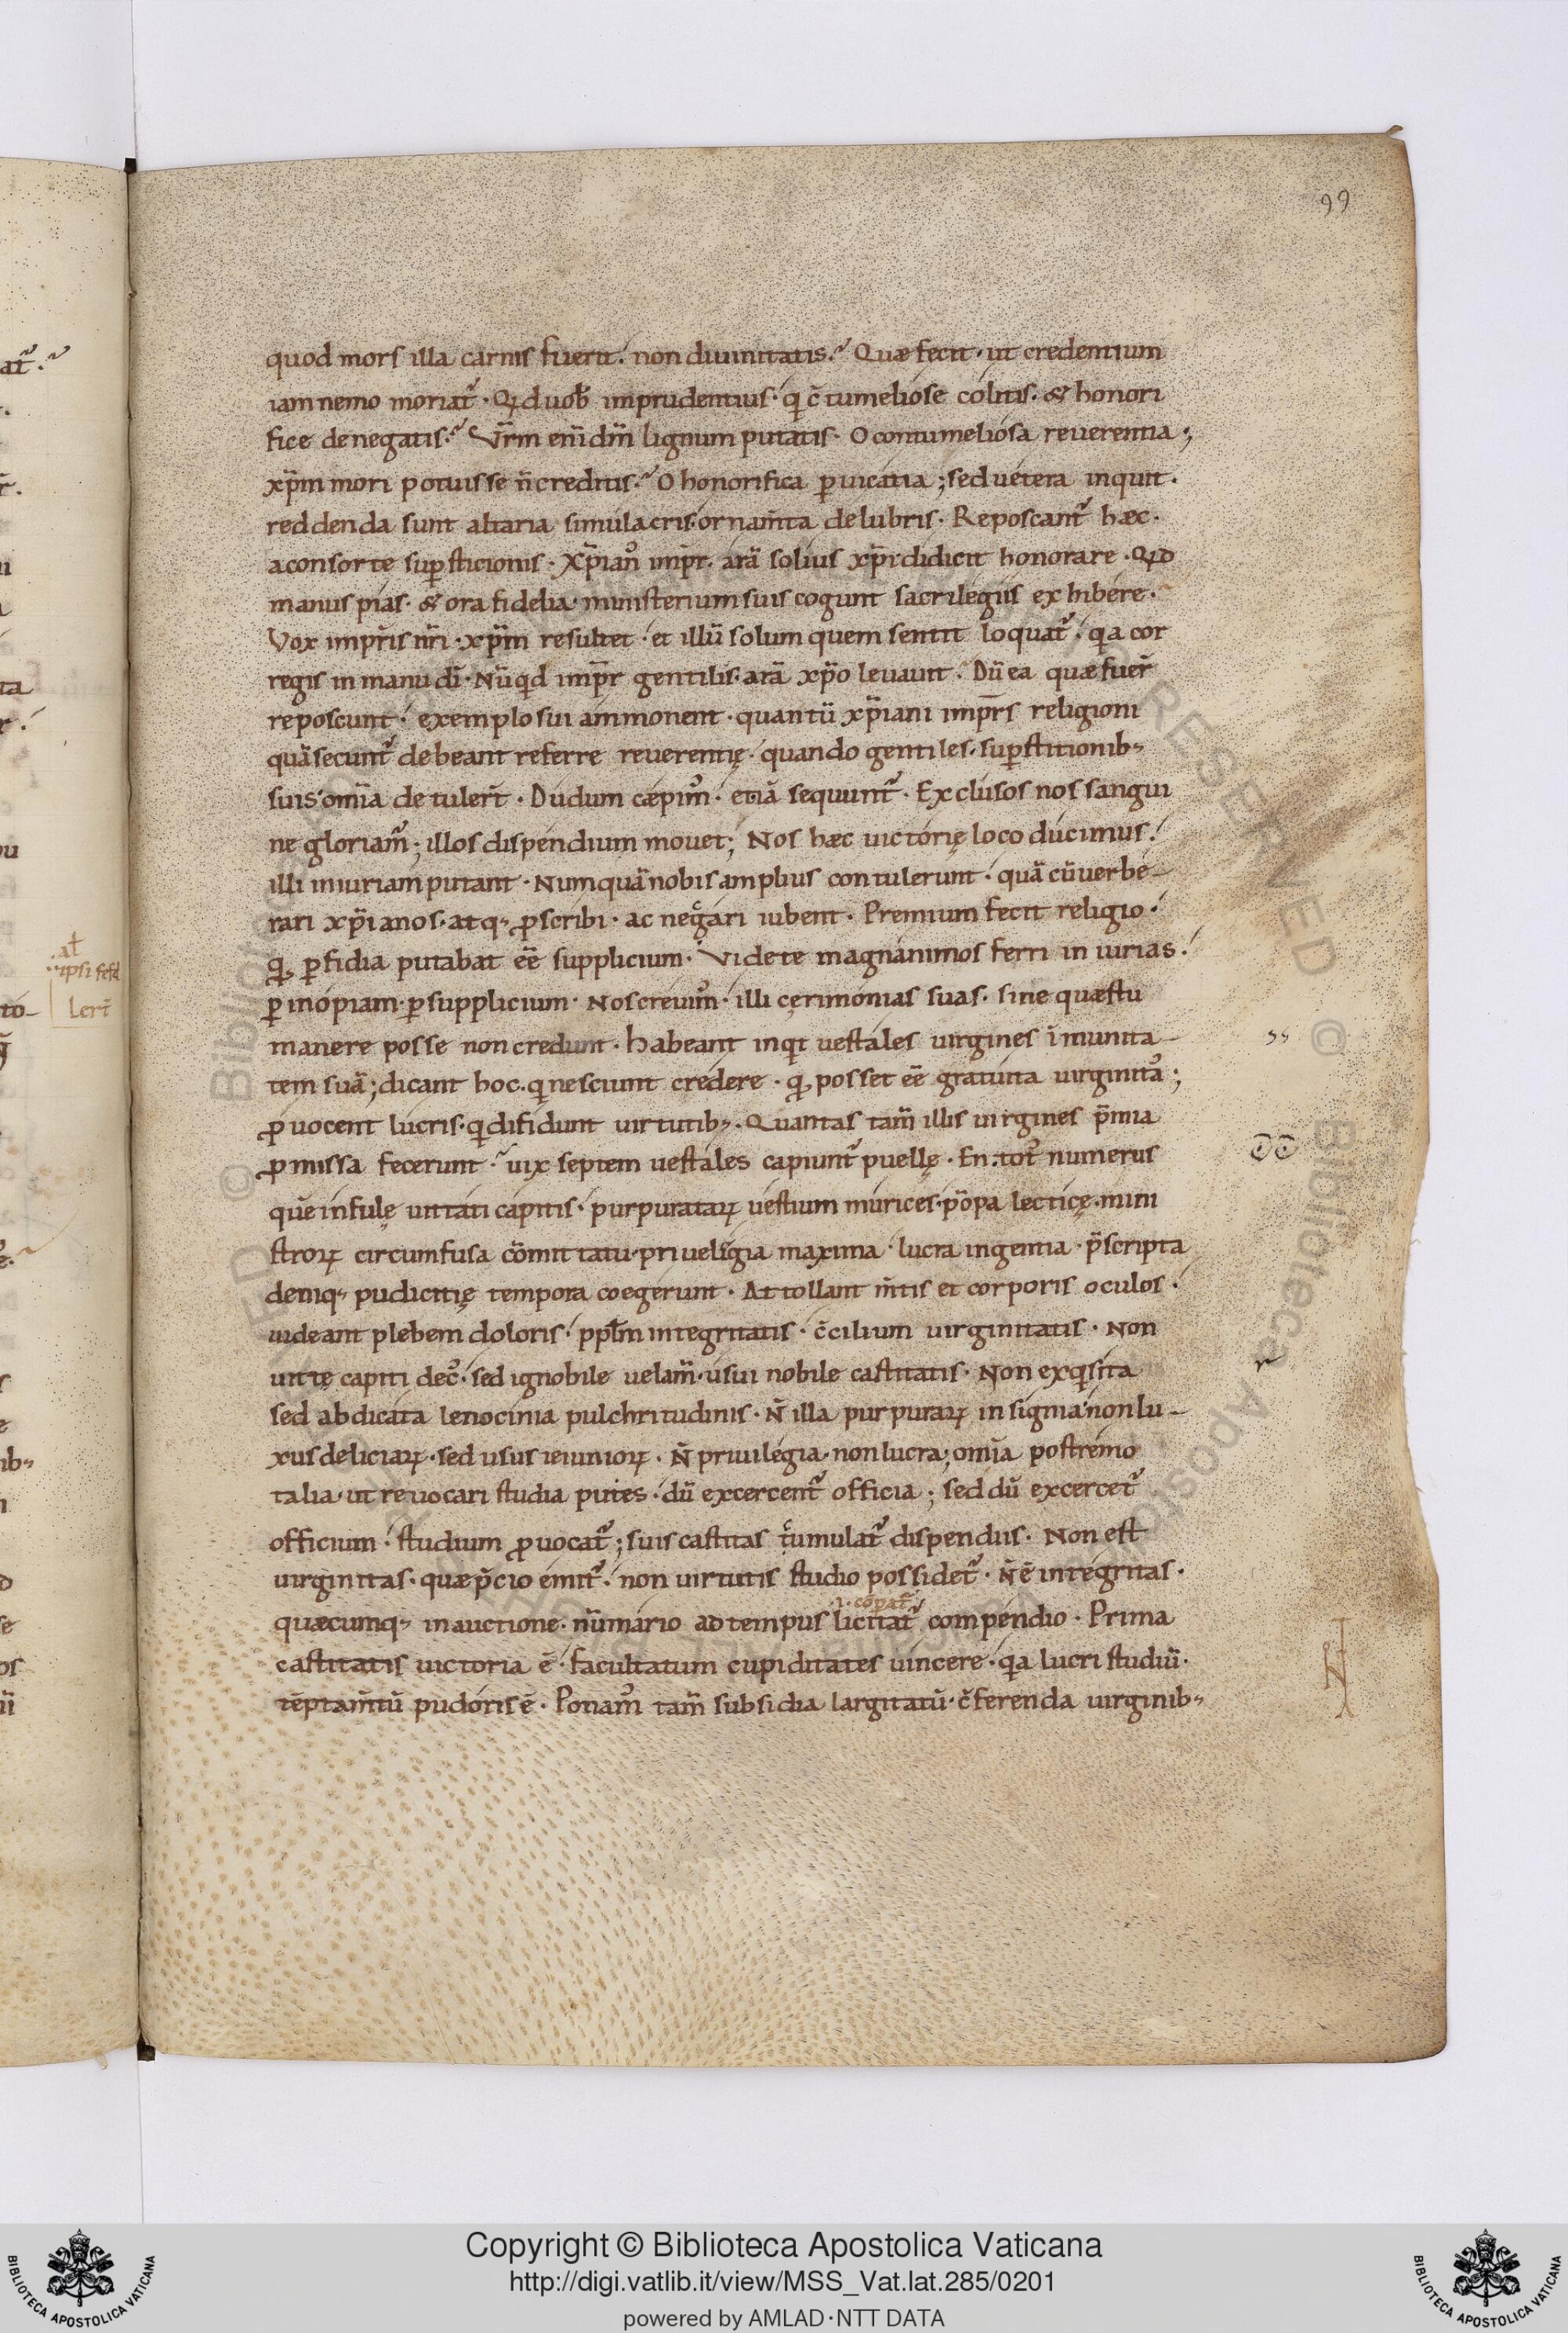 99
quod mors illa carnis fuerit. non diuinitatis. Quæ fecit. ut credentium
iam nemo moriat᷑. Qd uob̄ imprudentius. qi c̄tumeliose colitis. & honori
fice denegatis. Vr̄m eni dm̄ lignum putatis. O contumeliosa reuerentia;
xp̄m mori potuisse n̄ creditis. O honorifica ꝑuicatia; sed uetera inquit.
reddenda sunt altaria simulacris. ornam̄ta delubris. Reposcant᷑ hæc.
a consorte suꝑsticionis. Xp̄ian᷒ imp̄r. arā solius xp̄i didicit honorare. Qd
manus pias. & ora fidelia. ministerium suis cogunt sacrilegiis exhibere.
Vox imp̄ris nr̄i. xp̄m resultet. et illū solum quem sentit loquat᷑. qa cor
regis in manu dī. Nūqd imp̄r gentilis. arā xp̄o leuauit. Dū ea quæ fuer̄
reposcunt. exemplo sui ammonent. quantū xp̄iani imp̄rs religioni
quā secunt᷑ debeant referre reuerentię. quando gentiles. suꝑstitionib;
suis omīa detuler̄t. Dudum cæpim᷒. etiā sequunt᷑. Exclusos nos sangui
ne gloriam᷑; illos dispendium mouet; Nos hæc uictorię loco ducimus.
illi iniuriam putant. Numquā nobis amplius contulerunt. quā cū uerbe-
rari xp̄ianos. atq; ꝓscribi. ac negari iubent. Premium fecit religio.
qd ꝑfidia putabat eē supplicium. Videte magnanimos ferri iniurias.
ꝑ inopiam. ꝑ supplicium. Nos creuim᷒. illi cęrimonias suas. sine quæstu
manere posse non credunt. Habeant inqt uestales uirgines īmunita-
tem suā; dicant hoc. qi nesciunt credere. qd posset eē gratuita uirginita᷒;
ꝓuocent lucris. qi difidunt uirtutib;. Quantas tam̄ illis uirgines p̄mia
ꝓmissa fecerunt. uix septem uestales capiunt᷑ puellę. En. tot᷒ numerus
quē infulę uittati capitis. purpuratarꝝ uestium murices. pōpa lecticę. mini
strorꝝ circumfusa cōmittatu. priueligia maxima. lucra ingentia. p̄scripta
deniq; pudicitię tempora coegerunt. Attollant m̄tis et corporis oculos.
uideant plebem doloris. ppl̄m integritatis. c̄cilium uirginitatis. Non
uittę capiti dec᷒. sed ignobile uelam̄. usui nobile castitatis. Non exqisita
sed abdicata lenocinia pulchritudinis. N̄ illa purpurarꝝ insignia. non lu-
xus deliciarꝝ. sed usus ieiuniorꝝ. N̄ priuilegia. non lucra; omīa postremo
talia. ut reuocari studia putes. dū excercent᷑ officia; sed dū excercet᷑
officium. studium ꝓuocat᷑; suis castitas tumulat᷑ dispendiis. Non est
uirginitas. quæ p̄cio emit᷑. non uirtutis studio possidet᷑. N̄ ē integritas.
.i. cōpat᷑
quæcumq; in auctione. nūmario ad tempus licitat᷑ compendio. Prima
castitatis uictoria ē. facultatum cupiditates uincere. qa lucri studiū.
tēptam̄tū pudoris ē. Ponam᷒ tam̄ subsidia largitatū. c̄ferenda uirginib;
Copyright © Biblioteca Apostolica Vaticana
http://digi.vatlib.it/view/MSS_Vat.lat.285/0201
powered by AMLAD·NTT DATA
BIBLIOTECA APOSTOLICA VATICANA
BIBLIOTECA APOSTOLICA VATICANA